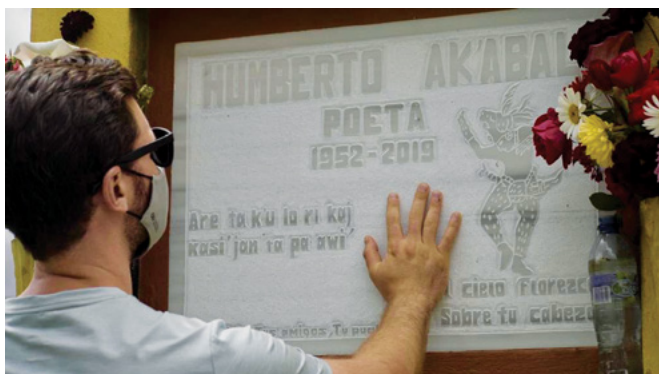 HUMBERTO AK'ABAL
POETA
1952-2019
Are ta k'u la ri kaj
kasi'jan ta pa awi'
cielo florezca
Sobre tu cabeza
amigos, Tu